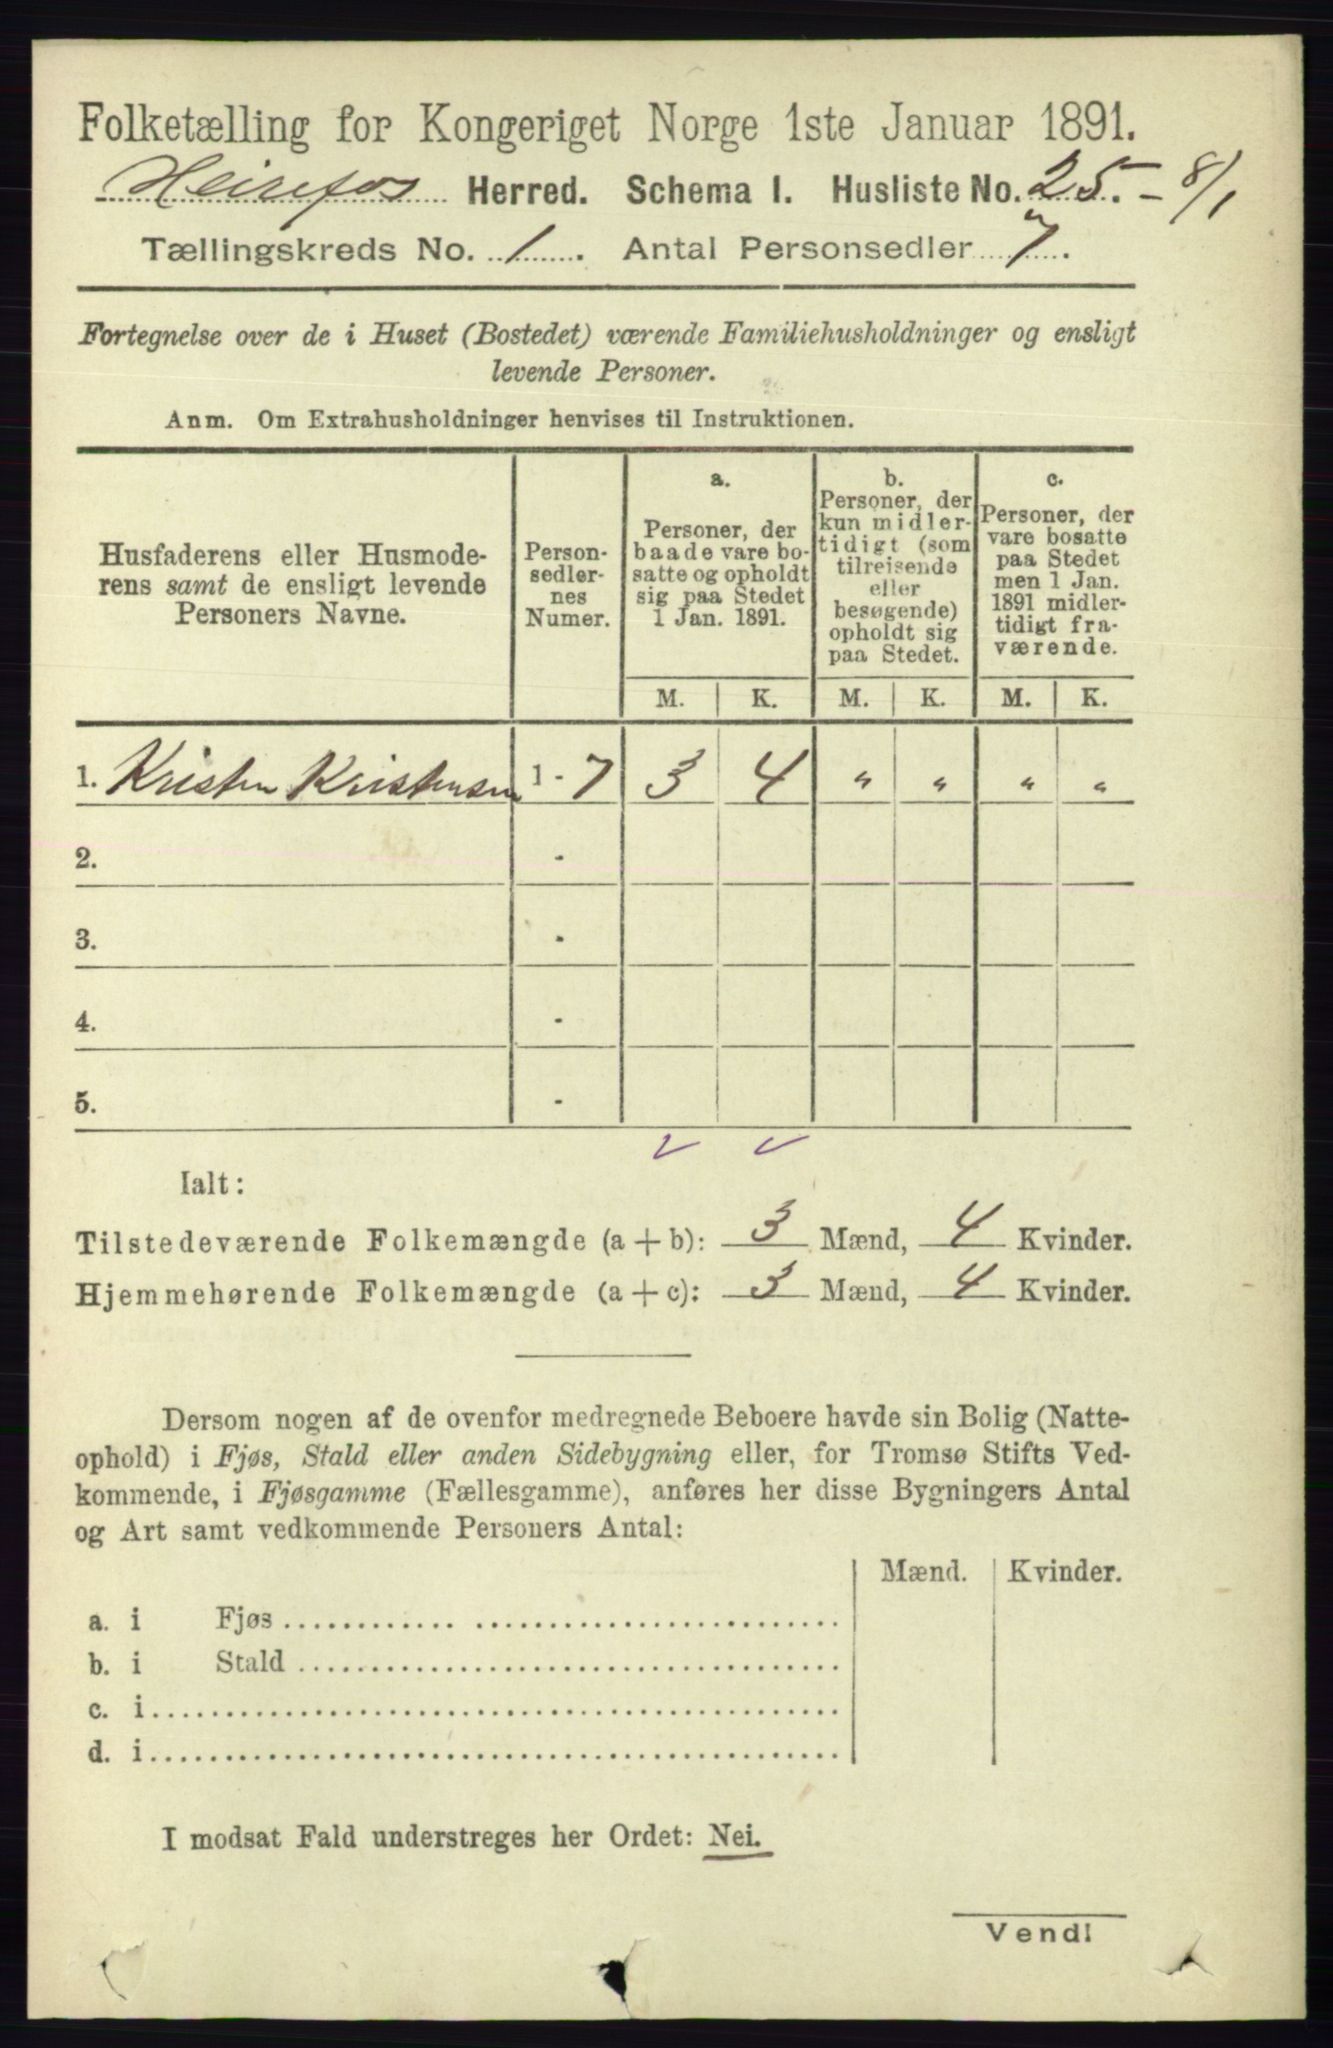 Folketælling for Kongeriget Norge 1ste Januar 1891.
Heirefos Herred. Schema I. Husliste No. 25. - 8/1
Tællingskreds No. 1. Antal Personsedler 7.
Fortegnelse over de i Huset (Bostedet) værende Familiehusholdninger og ensligt
levende Personer.
Anm. Om Extrahusholdninger henvises til Instruktionen.
Husfaderens eller Husmode-
rens samt de ensligt levende
Personers Navne.
Person-
sedler-
nes
Numer.
a.
Personer, der
baade vare bo-
satte og opholdt
sig paa Stedet
1 Jan. 1891.
b.
Personer, der
kun midler-
tidigt (som
tilreisende
eller
besøgende)
opholdt sig
paa Stedet.
c.
Personer, der
vare bosatte
paa Stedet
men 1 Jan.
1891 midler-
tidigt fra-
værende.
M. K. M. K. M. K.
1. Kristen Kristensen 1 - 7 3 4 " " " "
2. -
3. -
4. -
5. -
Ialt:
Tilstedeværende Folkemængde (a + b): 3 Mænd, 4 Kvinder.
Hjemmehørende Folkemængde (a + c): 3 Mænd, 4 Kvinder.
Dersom nogen af de ovenfor medregnede Beboere havde sin Bolig (Natte-
ophold) i Fjøs, Stald eller anden Sidebygning eller, for Tromsø Stifts Ved-
kommende, i Fjøsgamme (Fællesgamme), anføres her disse Bygningers Antal
og Art samt vedkommende Personers Antal:
Mænd. Kvinder.
a. i Fjøs
b. i Stald
c. i
d. i
I modsat Fald understreges her Ordet: Nei.
Vend!